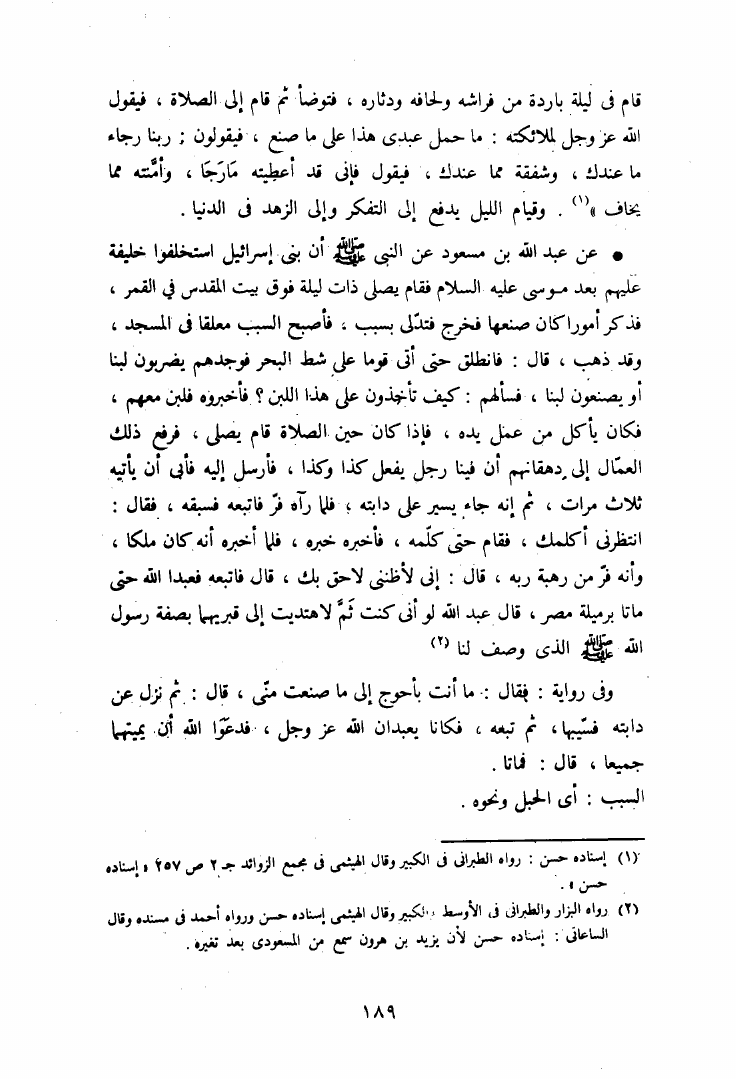 قام فى ليلة باردة من فراشه ولحافه ودثاره ، فتوضأ ثم قام إلى الصلاة ، فيقول
الله عز وجل لملائكته : ما حمل عبدى هذا على ما صنع ، فيقولون : ربنا رجاء
ما عندك ، وشفقة مما عندك ، فيقول فإنى قد أعطيته مَارَجَا ، وأمَّنته مما
يخاف »(١) . وقيام الليل يدفع إلى التفكر وإلى الزهد فى الدنيا .
● عن عبد الله بن مسعود عن النبى ﷺ أن بنى إسرائيل استخلفوا خليفة
عليهم بعد موسى عليه السلام فقام يصلى ذات ليلة فوق بيت المقدس في القمر ،
فذكر أمورا كان صنعها فخرج فتدلّى بسبب ، فأصبح السبب معلقا فى المسجد ،
وقد ذهب ، قال : فانطلق حتى أتى قوما على شط البحر فوجدهم يضربون لبنا
أو يصنعون لبنا ، فسألهم : كيف تأخذون على هذا اللبن ؟ فأخبروه فلبن معهم ،
فكان يأكل من عمل يده ، فإذا كان حين الصلاة قام يصلى ، فرفع ذلك
العمّال إلى دهقانهم أن فينا رجل يفعل كذا وكذا ، فأرسل إليه فأبى أن يأتيه
ثلاث مرات ، ثم إنه جاء يسير على دابته ؛ فلما رآه فرّ فاتبعه فسبقه ، فقال :
انتظرنى أكلمك ، فقام حتى كلّمه ، فأخبره خبره ، فلما أخبره أنه كان ملكا ،
وأنه فرّ من رهبة ربه ، قال : إنى لأظننى لاحق بك ، قال فاتبعه فعبدا الله حتى
ماتا برميلة مصر ، قال عبد الله لو أنى كنت ثَمَّ لاهتديت إلى قبريهما بصفة رسول
الله ﷺ الذى وصف لنا (٢)
وفى رواية : فقال : ما أنت بأحوج إلى ما صنعت منّى ، قال : ثم نزل عن
دابته فسّيبها ، ثم تبعه ، فكانا يعبدان الله عز وجل ، فدعَوَا الله أن يميتهما
جميعا ، قال : فماتا .
السبب : أى الحبل ونحوه .
(١) إسناده حسن : رواه الطبرانى فى الكبير وقال الهيثمى فى مجمع الزوائد جـ ٢ ص ٢٥٧ « إسناده
حسن » .
(٢) رواه البزار والطبرانى فى الأوسط والكبير وقال الهيثمى إسناده حسن ورواه أحمد فى مسنده وقال
الساعاتى : إسناده حسن لأن يزيد بن هرون سمع من المسعودى بعد تغيره .
١٨٩